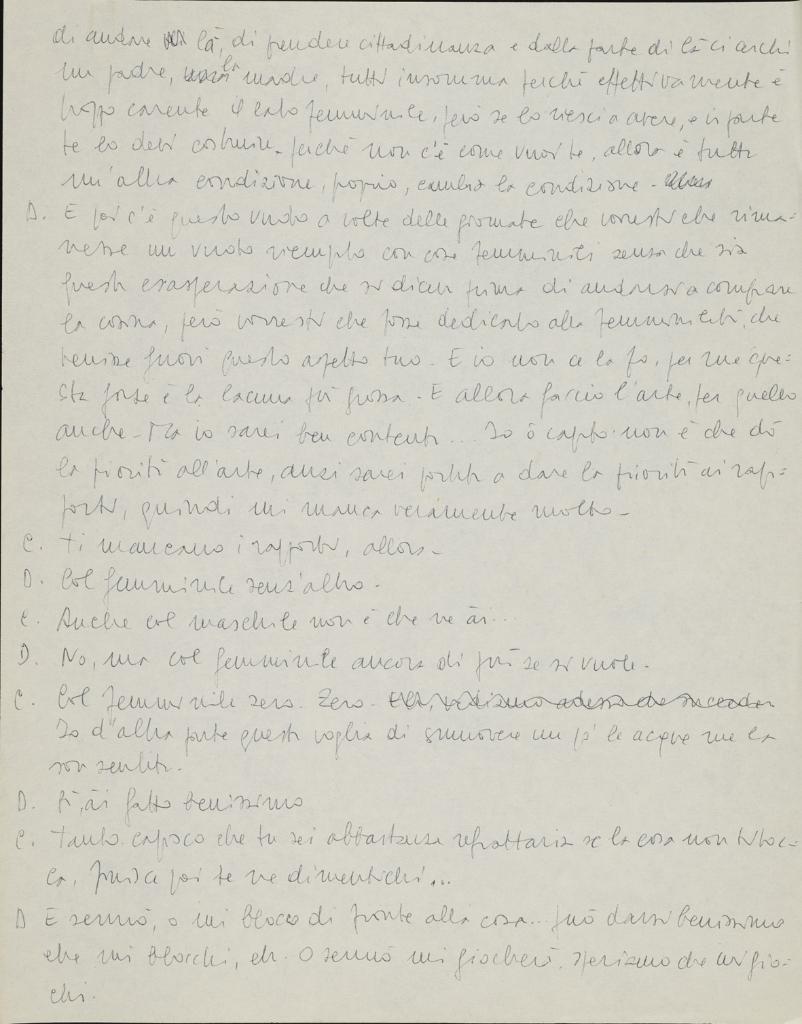 di andare là, di prendere cittadinanza e dalla parte di là ci cerchi
un padre, la madre, tutti insomma perché effettivamente è
troppo carente il lato femminile, però se lo riesci a avere, e in parte
te lo devi costruire perché non c'è come vuoi te, allora è tutta
un'altra condizione, proprio, cambia la condizione -
D. E poi c'è questo vuoto a volte delle giornate che vorresti che rima-
nesse un vuoto riempito con cose femminili senza che sia
questa esasperazione che si diceva prima di andarsi a comprare
la cosina, però vorresti che fosse dedicato alla femminilità, che
venisse fuori questo aspetto tuo. E io non ce la fo, per me que-
sta forse è la lacuna più grossa. E allora faccio l'arte, per quello
anche - Ma io sarei ben contenta... Io ò capito non è che dò
la priorità all'arte, anzi sarei portata a dare la priorità ai rap-
porti, quindi mi manca veramente molto -
C. Ti mancano i rapporti, allora -
D. Col femminile senz'altro -
C. Anche col maschile non è che ne ài...
D. No, ma col femminile ancora di più se si vuole -
C. Col femminile zero. Zero. Eh, vediamo adesso che succede
Io d'altra parte questa voglia di smuovere un po' le acque me la
son sentita -
D. Sì, ài fatto benissimo
C. Tanto capisco che tu sei abbastanza refrattaria se la cosa non ti bloc-
ca, finisce poi te ne dimentichi...
D E sennò, o mi blocco di fronte alla cosa... Può darsi benissimo
che mi blocchi, eh. O sennò mi giocherò. Speriamo che mi gio-
chi.